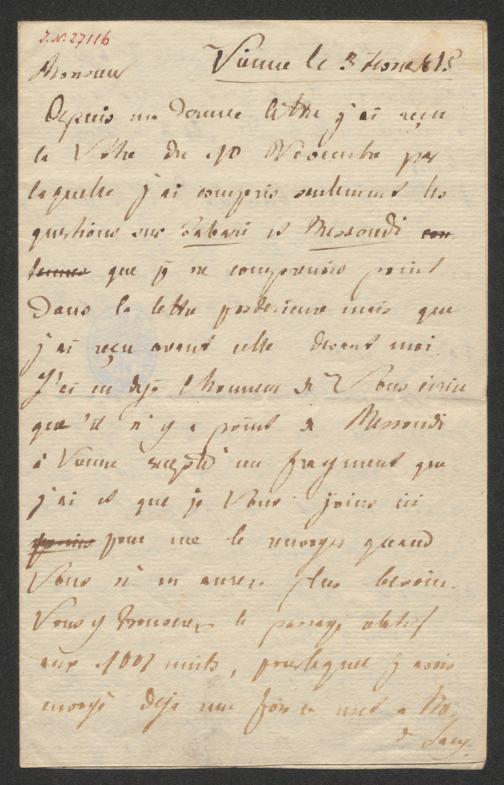 J.N. 27116
Vienne le 3
Monsieur
Depuis ma Derniere lettre j'ai reçu
la Votre du 10 Novembre par
laquelle j'ai compris seulement les
questions sur Tabari et Messoudi con
tenues que je ne comprenois point
Dans la lettre posterieure mais que
j'ai reçu avant celle devant moi.
J'ai eu deja l'honneur de Vous écrire
que'il n'y a point de Messoudi
à Vienne excepté un fragment que
j'ai et que je Vous joins ici
pour me le renvoyer quand
Vous n'en aurez plus besoin.
Vous y trouverez le passage relatif
aux 1001 nuits, pour lequel j'avois
envoyé deja une fois ce mst a Mr
de Sacy.